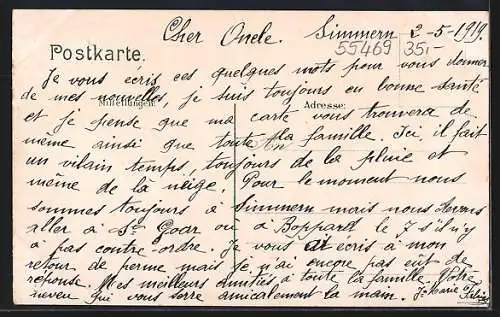 Cher Oncle. Simmern 2-5-1919.
55469 35,-
Postkarte.
Je vous ecris ces quelques mots pour vous donner
de mes nouvelles, je suis toujours en bonne santé
Mitteilungen. Adresse:
et je pense que ma carte vous trouvera de
même ainsi que toute la famille. Ici il fait
un vilain temps, toujours de la pluie et
même de la neige. Pour le moment nous
sommes toujours à Simmern mais nous devons
aller à St Goar ou à Boppard le 7 s'il n'y
a pas contre-ordre. Je vous ai ecris à mon
retour de perme mais je n'ai encore pas eut de
réponse. Mes meilleurs amitiés à toute la famille. Votre
neveu qui vous serre amicalement la main. Je Marie